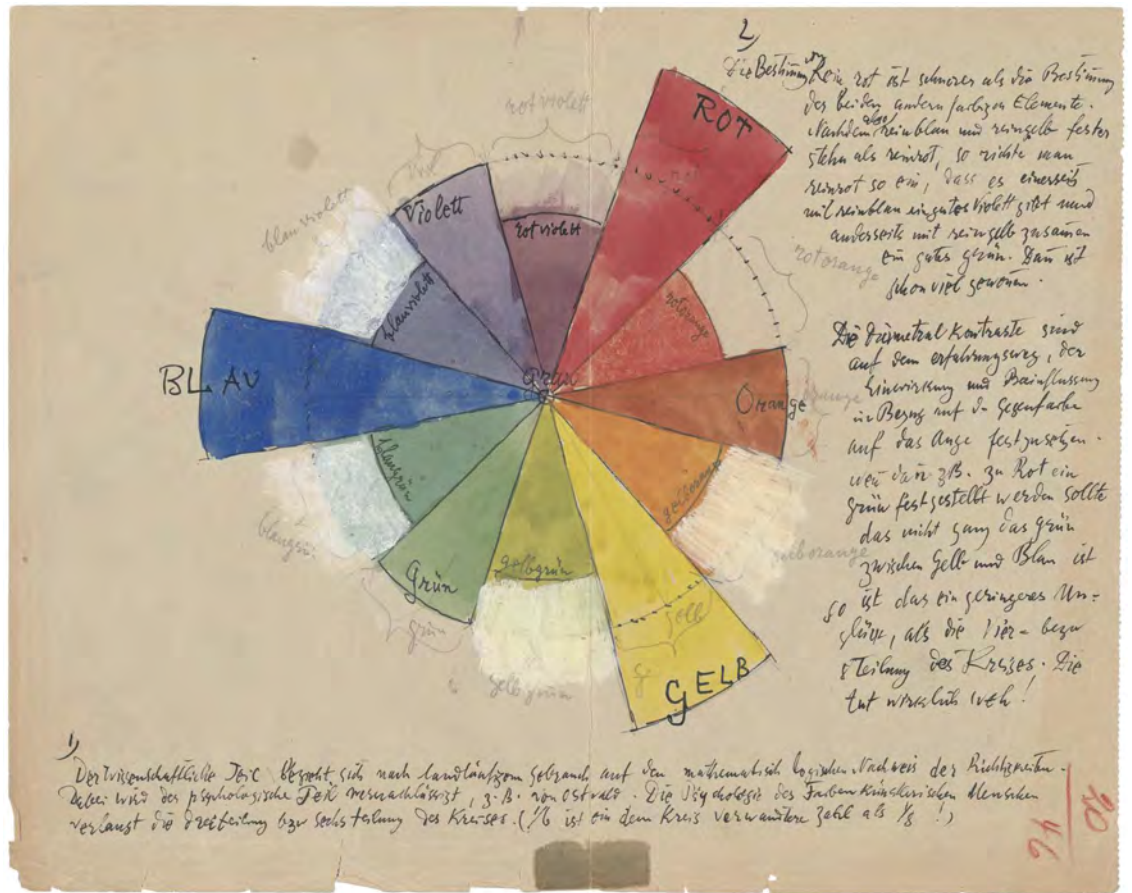 2)
Die Bestimung von Rein rot ist schwerer als die Bestimung
der beiden andern farbigen Elemente.
Nachdem also reinblau und reingelb fester
stehn als reinrot, so richte man
reinrot so ein, dass es einerseits
mit reinblau ein gutes Violett gibt und
anderseits mit reingelb zusamen
ein gutes grün. Dan ist
schon viel gewonen.
Die diametral Kontraste sind
auf dem erfahrungsweg, der
Einwirkung und Beinflussung
in Bezug auf d. gegenfarbe
auf das Auge festzusetzen.
wen dan z.B. zu Rot ein
grün festgestellt werden sollte
das nicht ganz das grün
zwischen Gelb und Blau ist
so ist das ein geringeres Un=
glück, als die Vier= bezw
8 Teilung des Kreises. Die
tut wirklich weh!
rotviolett
ROT
viol
rot
blauviolett
Violett
rotviolett
rotorange
blauviolett
rotorange
BLAU
grau
Orange
orange
blaugrün
gelborange
blaugrün
gelborange
Grün
gelbgrün
grün
gelb
gelbgrün
g
GELB
1)
Der wissenschaftliche Teil bezieht sich nach landläufigem gebrauch auf den mathematisch logischen Nachweis der Richtigkeiten.
Dabei wird der psychologische Teil vernachlässigt, z.B. von Ostwald. Die Psychologie des Farbenkünstlerischen Menschen
verlangt die dreiteilung bzw sechsteilung des Kreises. (1/6 ist ein dem Kreis verwandtere Zahl als 1/8 !)